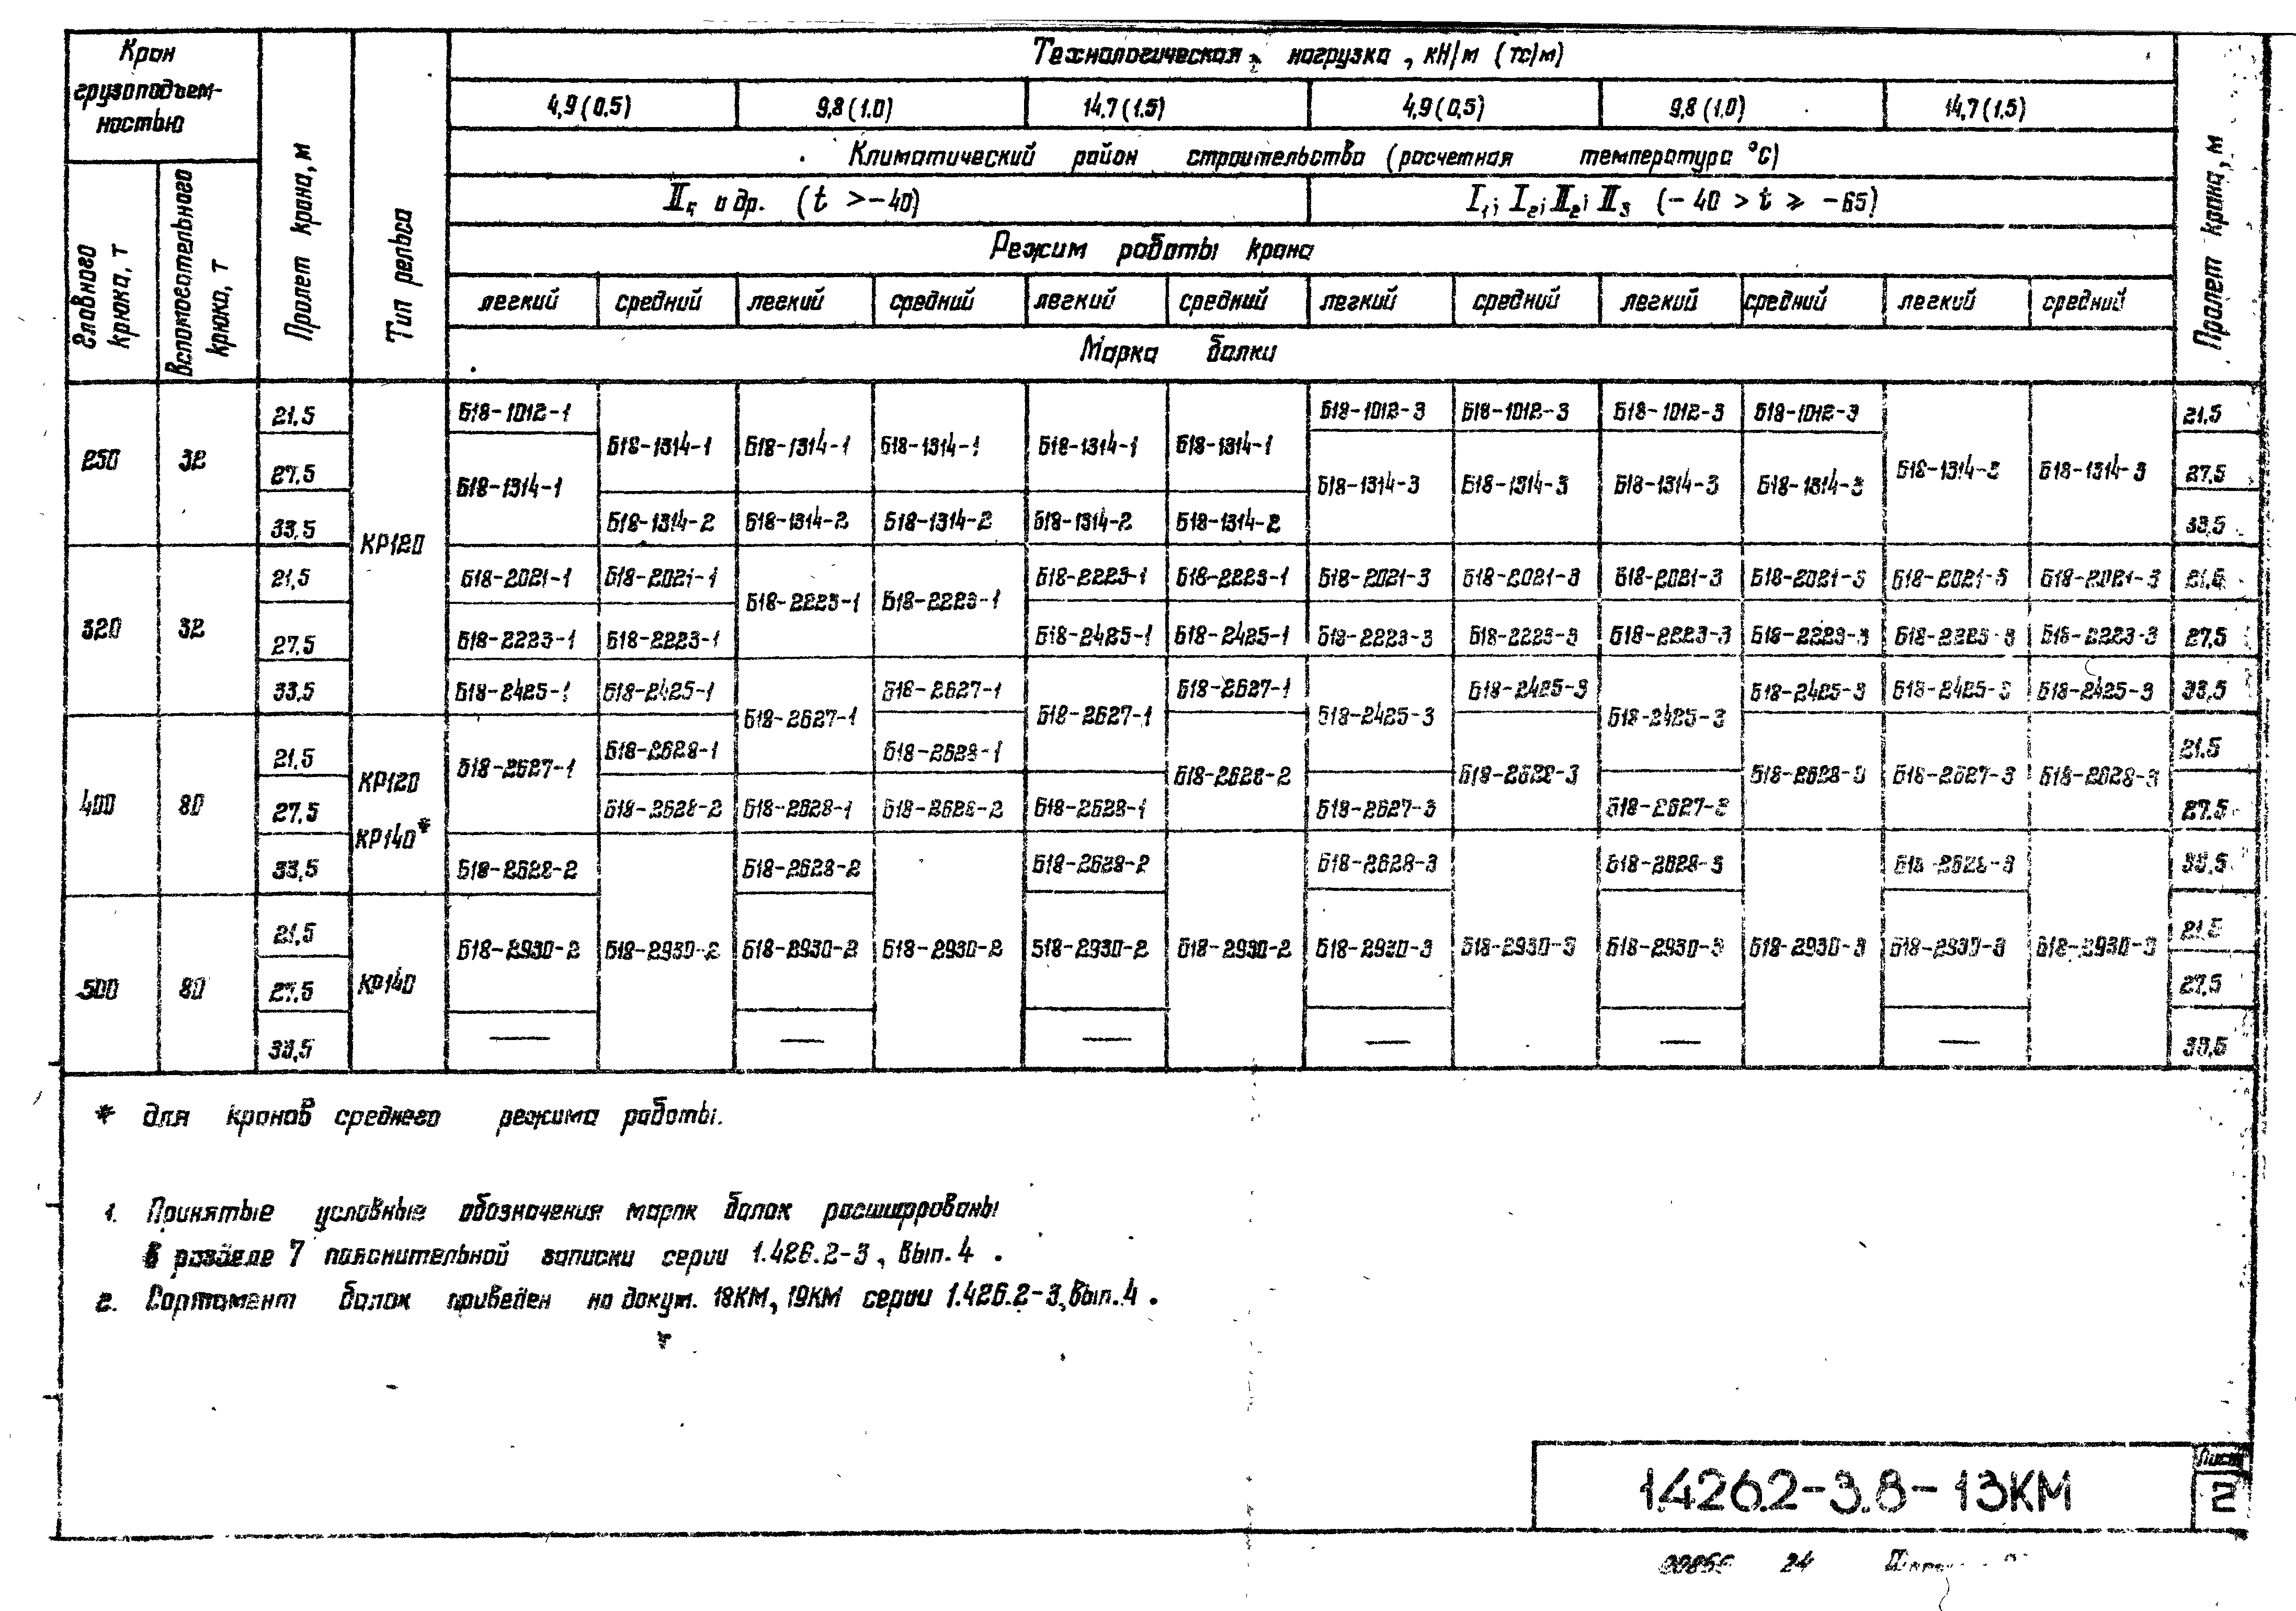 Кран грузоподъем-ностью
Главного крюка, т
Вспомогательного крюка, т
Пролет крана, м
Тип рельса
Технологическая нагрузка, кН/м (тс/м)
Пролет крана, м
4,9 (0,5) 9,8 (1.0) 14.7 (1.5) 4,9 (0,5) 9,8 (1,0) 14,7 (1,5)
Климатический район строительства (расчетная температура °С)
II₄ и др. (t > -40) I₁; I₂; II₂; II₃ (-40 > t ⩾ -65)
Режим работы крана
легкий средний легкий средний легкий средний легкий средний легкий средний легкий средний
Марка балки
250 32 КР120
21,5 Б18-1012-1 Б18-1012-3 Б18-1012-3 Б18-1012-3 Б18-1012-3 21,5
Б18-1314-1 Б18-1314-1 Б18-1314-1 Б18-1314-1 Б18-1314-1
27,5 Б18-1314-1 Б18-1314-3 Б18-1314-3 Б18-1314-3 Б18-1314-3 Б18-1314-3 Б18-1314-3 27,5
33,5 Б18-1314-2 Б18-1314-2 Б18-1314-2 Б18-1314-2 Б18-1314-2 33,5
320 32
21,5 Б18-2021-1 Б18-2021-1 Б18-2223-1 Б18-2223-1 Б18-2223-1 Б18-2223-1 Б18-2021-3 Б18-2021-3 Б18-2021-3 Б18-2021-3 Б18-2021-3 Б18-2021-3 21,5
27,5 Б18-2223-1 Б18-2223-1 Б18-2425-1 Б18-2425-1 Б18-2223-3 Б18-2223-3 Б18-2223-3 Б18-2223-3 Б18-2223-3 Б18-2223-3 27,5
33,5 Б18-2425-1 Б18-2425-1 Б18-2627-1 Б18-2627-1 Б18-2627-1 Б18-2627-1 Б18-2425-3 Б18-2425-3 Б18-2425-3 Б18-2425-3 Б18-2425-3 Б18-2425-3 33,5
400 80 КР120 КР140*
21,5 Б18-2627-1 Б18-2628-1 Б18-2628-1 Б18-2628-2 Б18-2628-3 Б18-2628-3 Б18-2627-3 Б18-2628-3 21,5
27,5 Б18-2628-2 Б18-2628-1 Б18-2628-2 Б18-2628-1 Б18-2627-3 Б18-2627-3 27.5
33,5 Б18-2628-2 Б18-2628-2 Б18-2628-2 Б18-2628-3 Б18-2628-3 Б18-2628-3 33,5
500 80 КР140
21,5 Б18-2930-2 Б18-2930-2 Б18-2930-2 Б18-2930-2 Б18-2930-2 Б18-2930-2 Б18-2930-3 Б18-2930-3 Б18-2930-3 Б18-2930-3 Б18-2930-3 Б18-2930-3 21,5
27,5 27,5
33,5 — — — — — — 33,5
* для кранов среднего режима работы.
1. Принятые условные обозначения марок балок расшифрованы
в разделе 7 пояснительной записки серии 1.426.2-3, вып. 4.
2. Сортамент балок приведен на докум. 18КМ, 19КМ серии 1.426.2-3, вып. 4.
1.426.2-3.8-13КМ
Лист
2
24